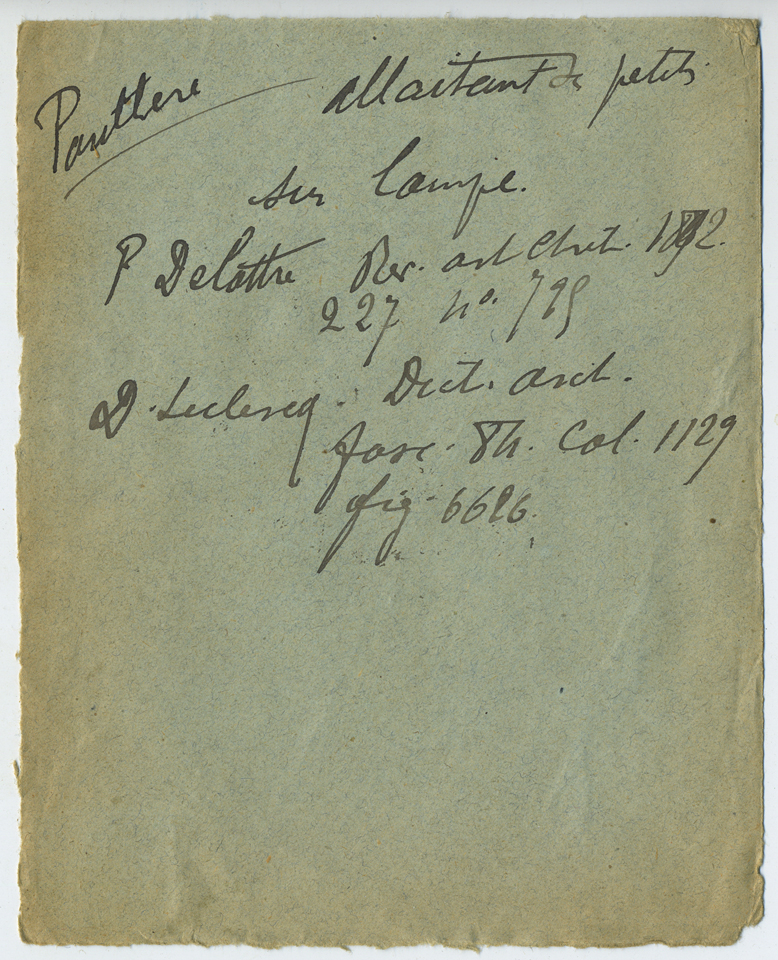 Panthere allaitant de petits
sur lampe.
P Delattre Rev. art Chret. 1892.
227 no. 795
D. Leclercq. Dict. arch.
fasc. Th. Col. 1129
fig 6626.